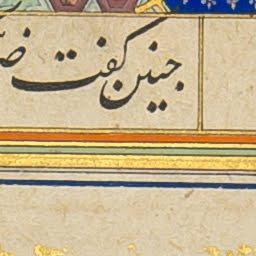 چنین گفت